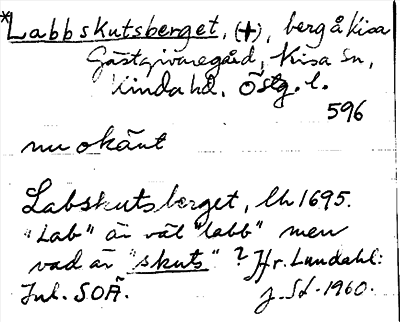 *Labbskutsberget, (+), berg å Kisa
Gästgivaregård, Kisa Sn,
Kinda hd, Östg. l.
596
nu okänt
Labskutsberget, lh 1695.
"Lab" är väl "labb" men
vad är "skuts"? Jfr. Lundahl:
Inl. SOÄ.
J. Sd. 1960.